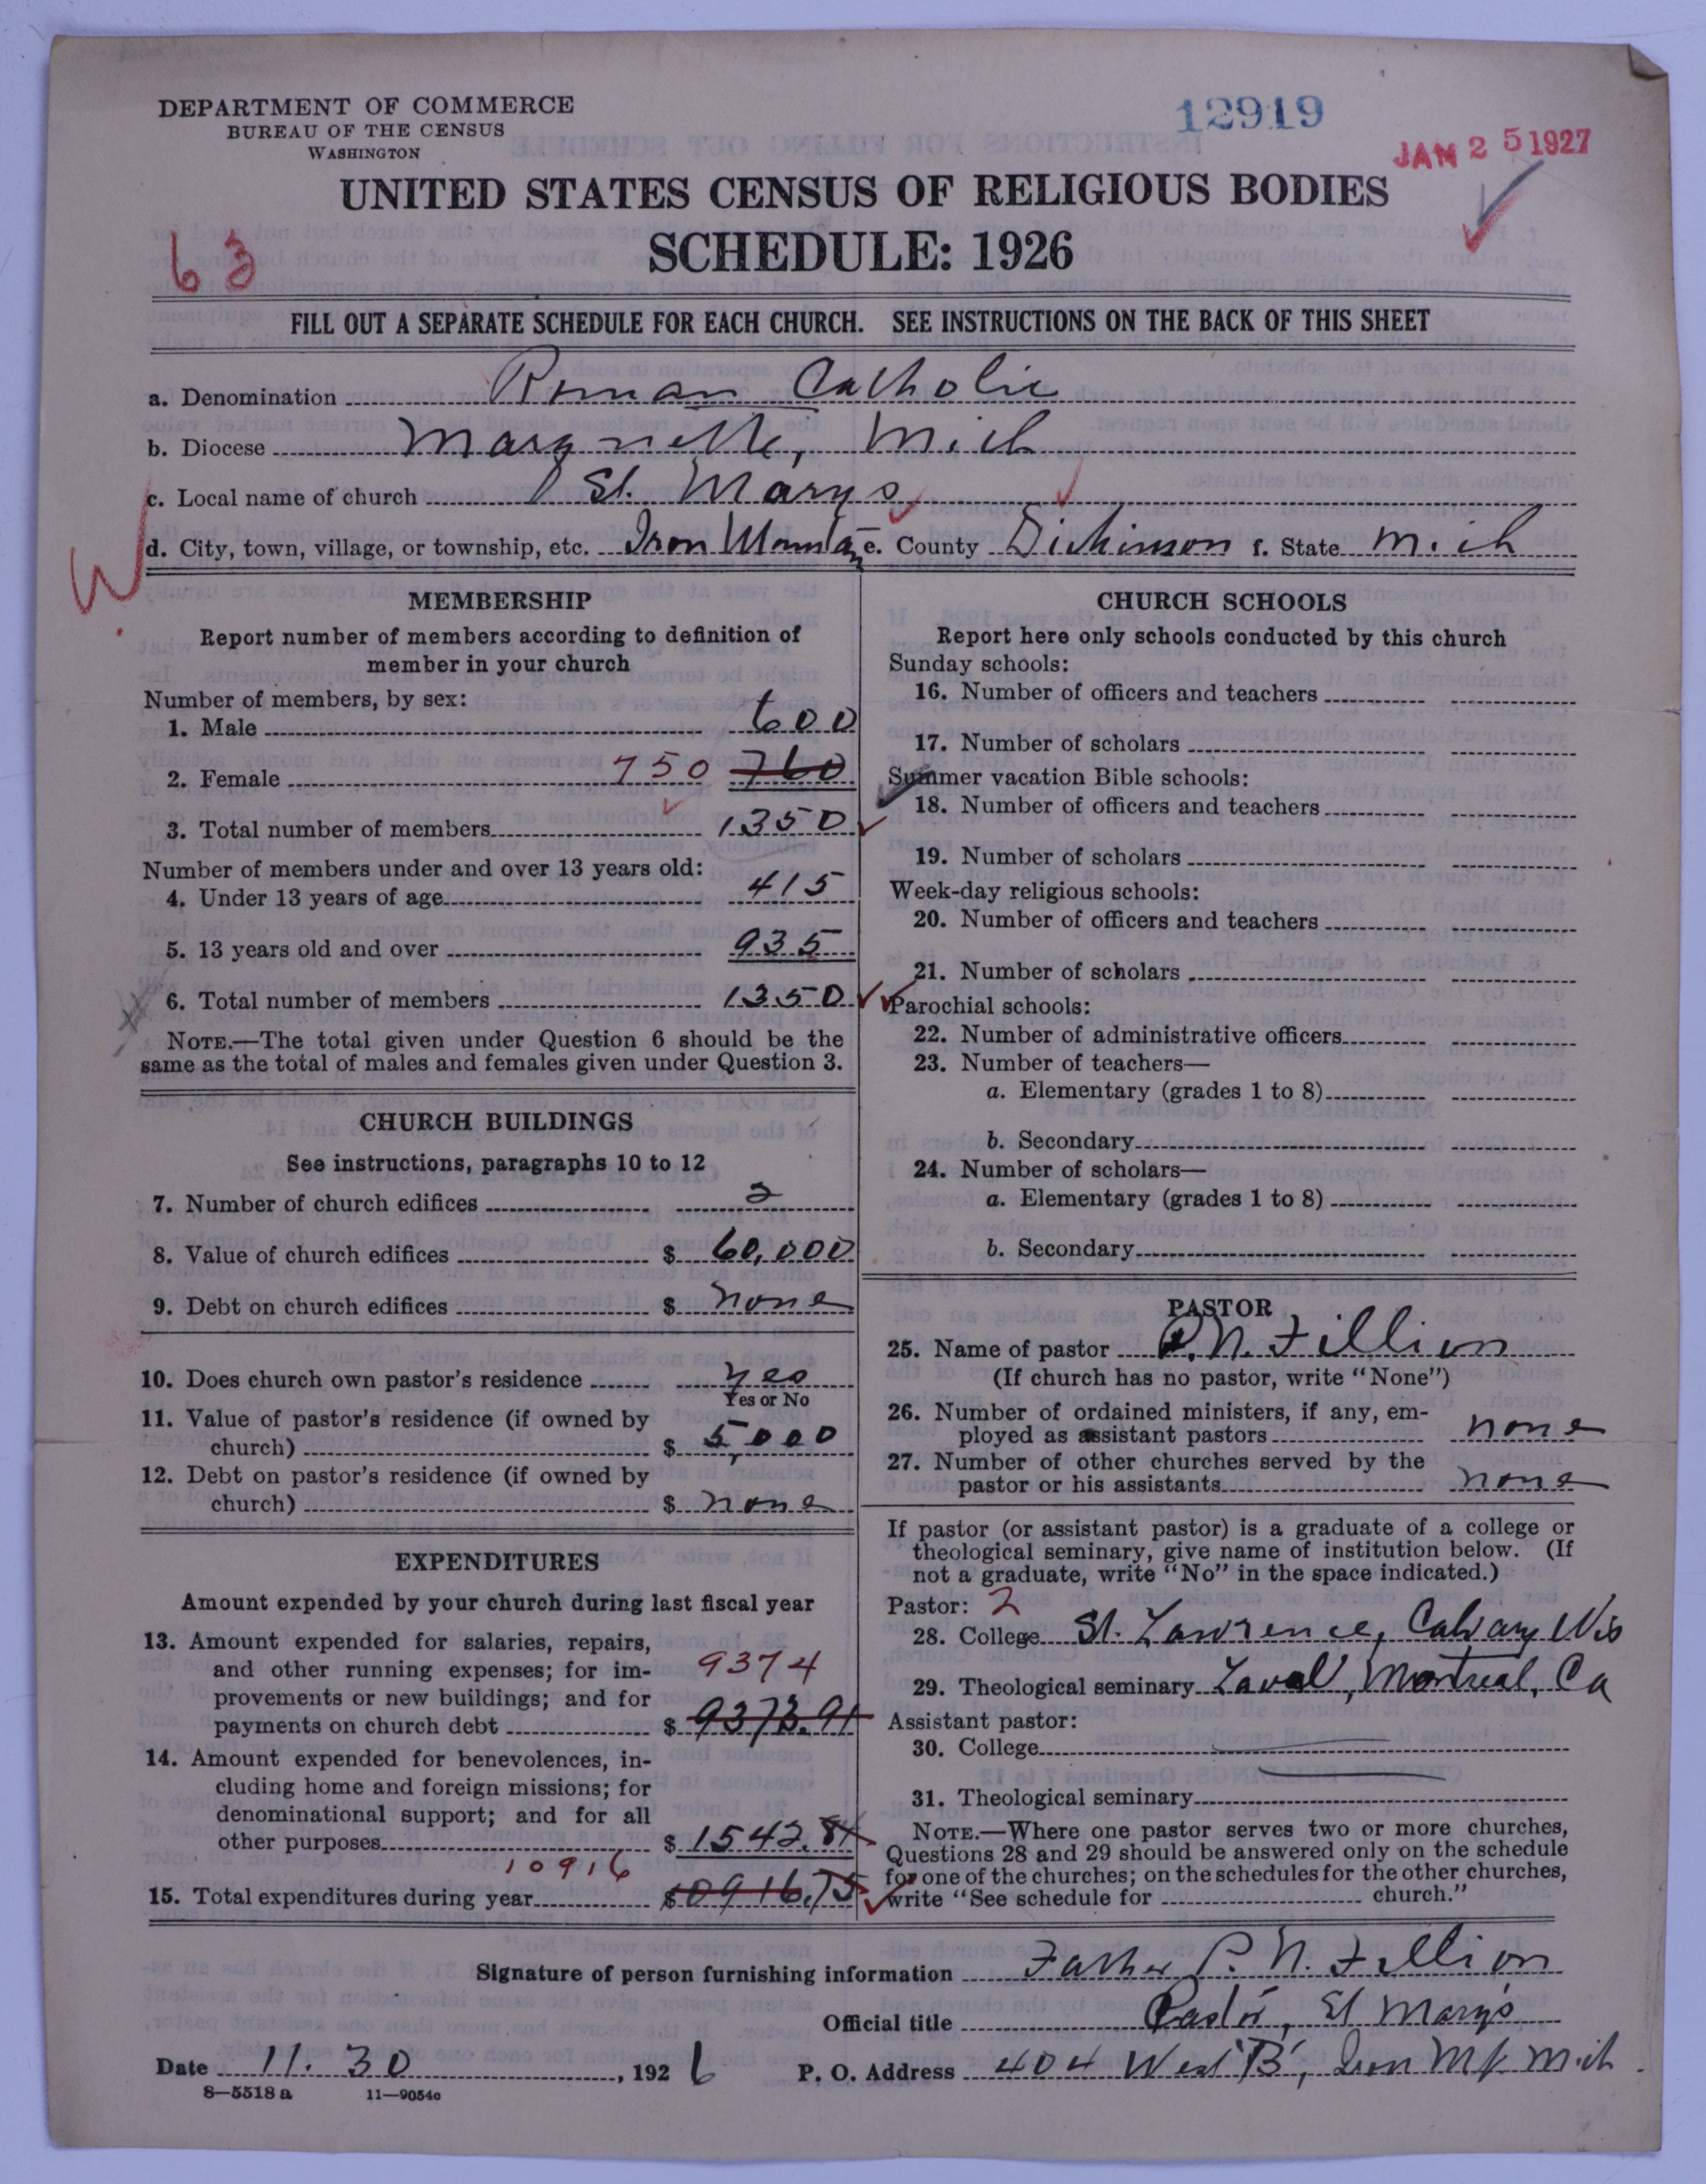 DEPARTMENT OF COMMERCE
BUREAU OF THE CENSUS
WASHINGTON
12919
JAN 25 1927
UNITED STATES CENSUS OF RELIGIOUS BODIES
SCHEDULE: 1926
63
FILL OUT A SEPARATE SCHEDULE FOR EACH CHURCH. SEE INSTRUCTIONS ON THE BACK OF THIS SHEET
a. Denomination Roman Catholic
b. Diocese Marquette, Mich
c. Local name of church St. Marys
W
d. City, town, village, or township, etc. Iron Mountain e. County Dickinson f. State Mich
MEMBERSHIP
Report number of members according to definition of
member in your church
Number of members, by sex:
1. Male 600
2. Female 750 760
3. Total number of members 1350
Number of members under and over 13 years old:
4. Under 13 years of age 415
5. 13 years old and over 935
6. Total number of members 1350
NOTE.—The total given under Question 6 should be the
same as the total of males and females given under Question 3.
CHURCH BUILDINGS
See instructions, paragraphs 10 to 12
7. Number of church edifices 2
8. Value of church edifices $ 60,000
9. Debt on church edifices $ none
10. Does church own pastor's residence yes
Yes or No
11. Value of pastor's residence (if owned by
church) $ 5,000
12. Debt on pastor's residence (if owned by
church) $ none
EXPENDITURES
Amount expended by your church during last fiscal year
13. Amount expended for salaries, repairs,
and other running expenses; for im-
provements or new buildings; and for
payments on church debt $ 9373.91
9374
14. Amount expended for benevolences, in-
cluding home and foreign missions; for
denominational support; and for all
other purposes $ 1542.84
10916
15. Total expenditures during year $10916.75
CHURCH SCHOOLS
Report here only schools conducted by this church
Sunday schools:
16. Number of officers and teachers
17. Number of scholars
Summer vacation Bible schools:
18. Number of officers and teachers
19. Number of scholars
Week-day religious schools:
20. Number of officers and teachers
21. Number of scholars
Parochial schools:
22. Number of administrative officers
23. Number of teachers—
a. Elementary (grades 1 to 8)
b. Secondary
24. Number of scholars—
a. Elementary (grades 1 to 8)
b. Secondary
PASTOR
25. Name of pastor P. N. Fillion
(If church has no pastor, write "None")
26. Number of ordained ministers, if any, em-
ployed as assistant pastors none
27. Number of other churches served by the
pastor or his assistants none
If pastor (or assistant pastor) is a graduate of a college or
theological seminary, give name of institution below. (If
not a graduate, write "No" in the space indicated.)
Pastor: 2
28. College St. Lawrence, Calvary Wis
29. Theological seminary Laval, Montreal, Ca
Assistant pastor:
30. College
31. Theological seminary
NOTE.—Where one pastor serves two or more churches,
Questions 28 and 29 should be answered only on the schedule
for one of the churches; on the schedules for the other churches,
write "See schedule for church."
Signature of person furnishing information Father P. N. Fillion
Official title Pastor, St Mary's
Date 11. 30, 1926 P. O. Address 404 West B, Iron Mt Mich.
8—5518 a 11—9054c